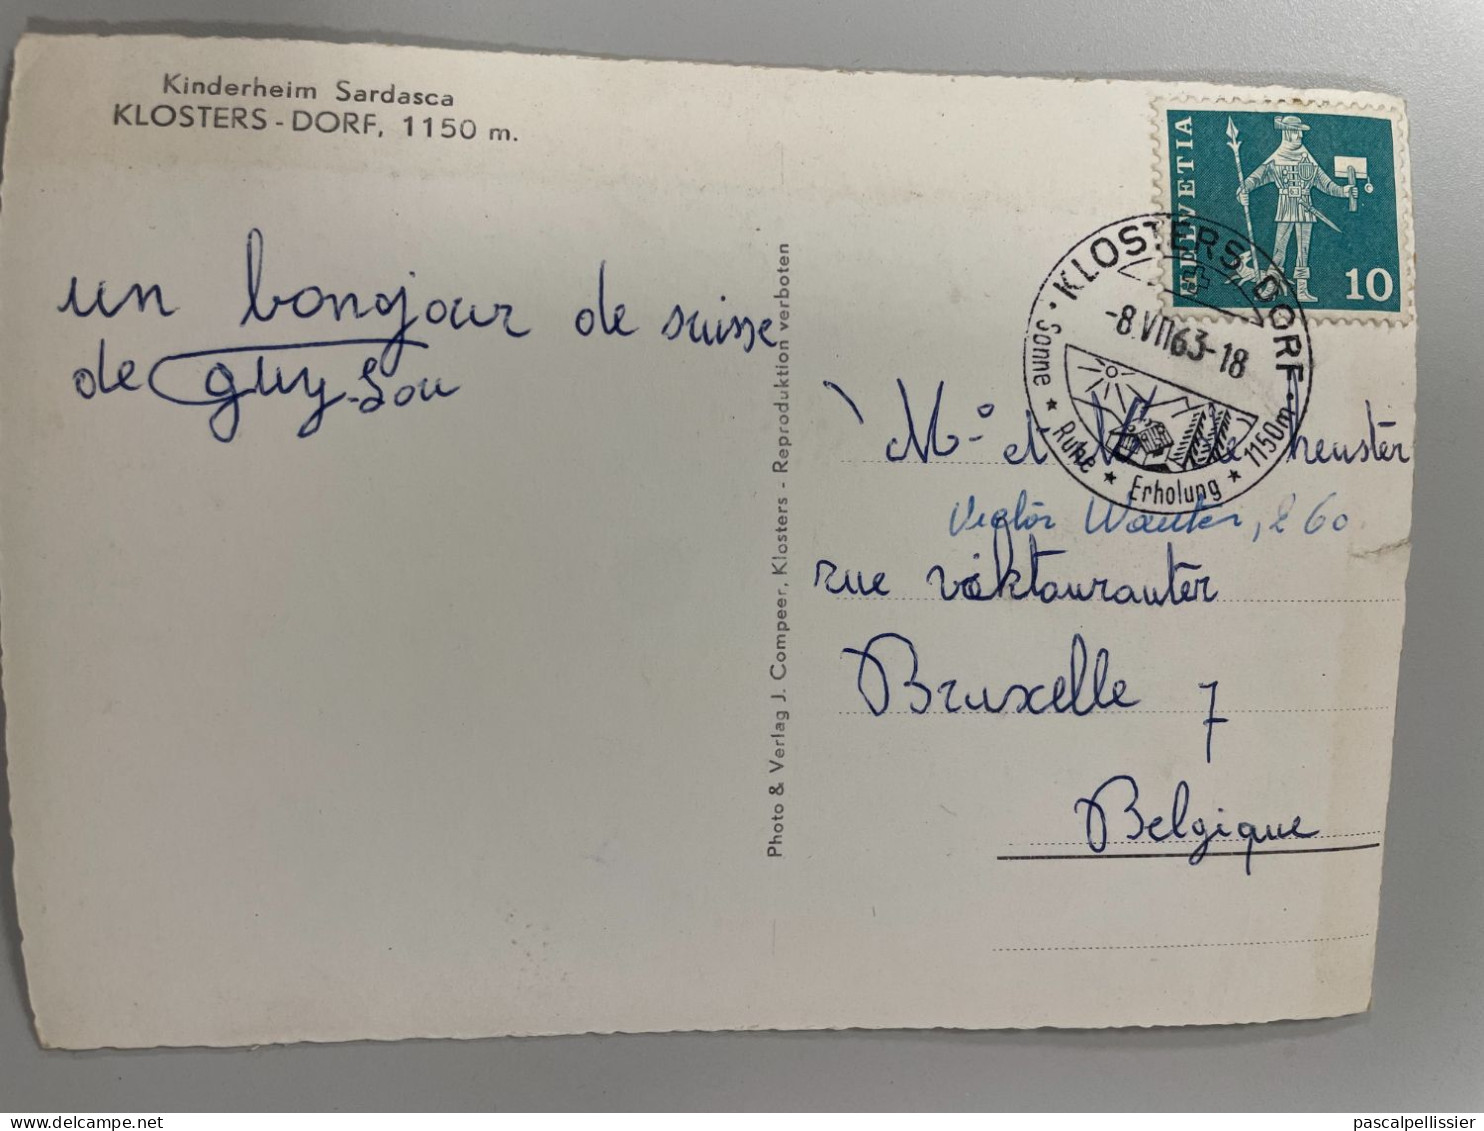 Kinderheim Sardasca
KLOSTERS-DORF, 1150 m.
un bonjour de suisse
de guy-Lou
Photo & Verlag J. Compeer, Klosters - Reproduktion verboten
HELVETIA
10
KLOSTERS-DORF
-8.VII63-18
Sonne ★ Ruhe ★ Erholung ★ 1150m
Mr et
Victor Wauter, 260
rue viktaurauter
Bruxelle 7
Belgique
delcampe.net
pascalpellissier